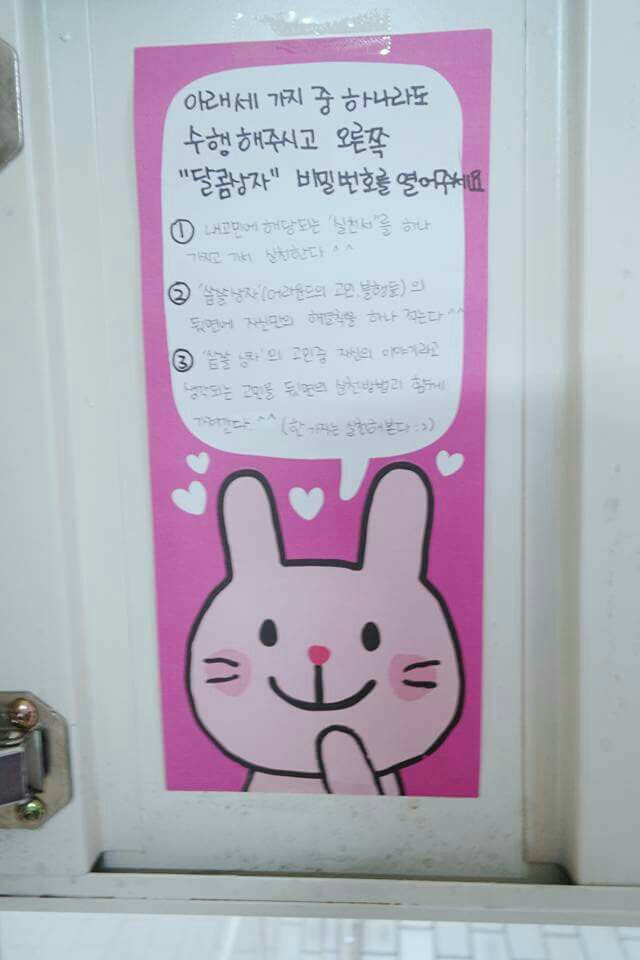 아래 세 가지 중 하나라도
수행해주시고 오른쪽
"달콤상자" 비밀번호를 열어주세요
① 내고민에 해당되는 '실천서'를 하나
가지고 가서 실천한다 ^^
② '쌉쌀상자'(어라운드의 고민, 불행들)의
뒷면에 자신만의 해결책을 하나 적는다 ^^
③ '쌉쌀 상자'의 고민중 자신의 이야기라고
생각되는 고민을 뒷면의 실천방법과 함께
가져간다 ^^ (한 가지는 실천해본다 :))